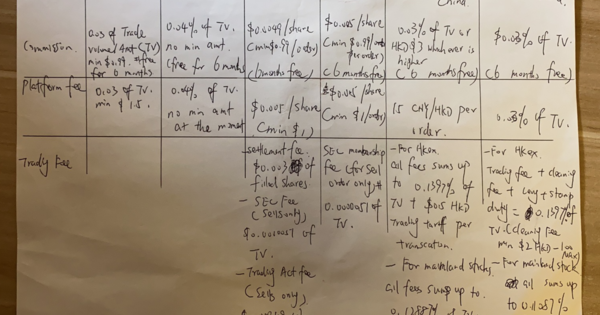 China
Commission.
0.03 of Trade
volume/Amt (TV)
min $0.99. free
for 6 months
0.04% of TV.
no min amt.
(free for 6 months
$0.0049/share
(min $0.99/order)
(6 months free)
$0.005/share
(min $0.99/
per order)
(6 months free)
0.03% of TV or
HKD$3 whichever is
higher
(6 months free)
$0.03% of TV.
(6 months free)
Platform fee
0.03 of TV.
min $1.5.
0.04% of TV.
no min amt
at the moment
$0.005/share
(min $1)
$0.005/share
(min $1/order)
15 CNY/HKD per
order.
0.03% of TV.
Trading Fee
- settlement fee
$0.003 of
filled shares
- SEC Fee
(sells only)
of
TV.
- Trading Act fee
(sells only,
SEC membership
fee (for sell
order only,
0.0000051 of
TV.
- For HKex.
all fees sums up
to 0.1597% of
TV + $0.5 HKD
Trading tariff per
transcation.
- For mainland stocks,
all fees sums up to
- For HKex.
Trading fee + clearing
fee + levy + stamp
duty = 0.1597% of
TV. (clearing fee
min $2 HKD - 100
max)
- For mainland stock
all sums up
to 0.11057%